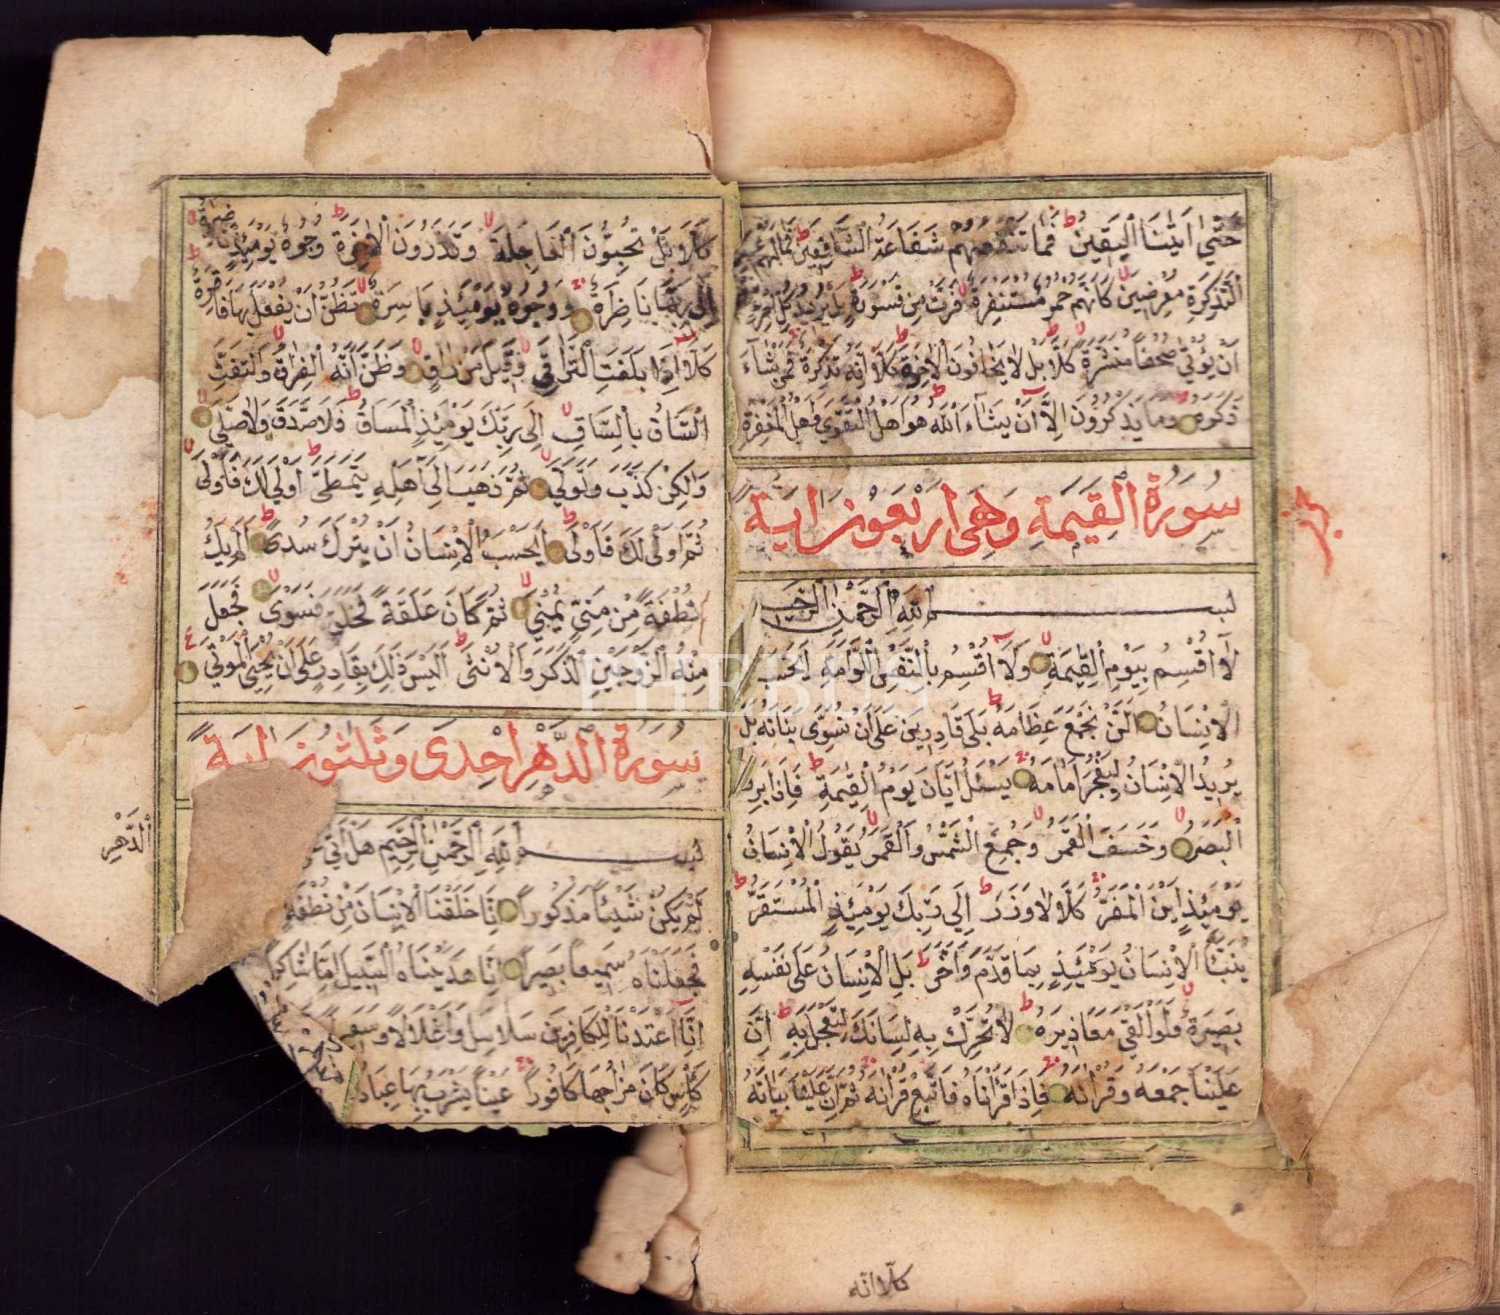 حَتّٰى اَتٰينَا الْيَقِينَ ط فَمَا تَنْفَعُهُمْ شَفَاعَةُ الشَّافِعِينَ ط فَمَا لَهُمْ عَنِ
التَّذْكِرَةِ مُعْرِضِينَ لا كَاَنَّهُمْ حُمُرٌ مُسْتَنْفِرَةٌ لا فَرَّتْ مِنْ قَسْوَرَةٍ ط بَلْ يُرِيدُ كُلُّ امْرِئٍ
اَنْ يُؤْتٰى صُحُفًا مُنَشَّرَةً لا كَلَّا ط بَلْ لَا يَخَافُونَ الْاٰخِرَةَ ط كَلَّا اِنَّهُ تَذْكِرَةٌ فَمَنْ شَاءَ
ذَكَرَهُ ط وَمَا يَذْكُرُونَ اِلَّا اَنْ يَشَاءَ اللّٰهُ ط هُوَ اَهْلُ التَّقْوٰى وَاَهْلُ الْمَغْفِرَةِ
سُورَةُ الْقِيٰمَةِ وَهِىَ اَرْبَعُونَ اٰيَةً
بِسْمِ اللّٰهِ الرَّحْمٰنِ الرَّحِيمِ
لَا اُقْسِمُ بِيَوْمِ الْقِيٰمَةِ لا وَلَا اُقْسِمُ بِالنَّفْسِ الَّوَّامَةِ اَيَحْسَبُ
الْاِنْسَانُ اَلَّنْ نَجْمَعَ عِظَامَهُ ط بَلٰى قَادِرِينَ عَلٰى اَنْ نُسَوِّىَ بَنَانَهُ بَلْ
يُرِيدُ الْاِنْسَانُ لِيَفْجُرَ اَمَامَهُ يَسْـَٔلُ اَيَّانَ يَوْمُ الْقِيٰمَةِ ط فَاِذَا بَرِقَ
الْبَصَرُ لا وَخَسَفَ الْقَمَرُ لا وَجُمِعَ الشَّمْسُ وَالْقَمَرُ لا يَقُولُ الْاِنْسَانُ
يَوْمَئِذٍ اَيْنَ الْمَفَرُّ كَلَّا لَا وَزَرَ ط اِلٰى رَبِّكَ يَوْمَئِذٍ الْمُسْتَقَرُّ ط
يُنَبَّؤُا الْاِنْسَانُ يَوْمَئِذٍ بِمَا قَدَّمَ وَاَخَّرَ ط بَلِ الْاِنْسَانُ عَلٰى نَفْسِهِ
بَصِيرَةٌ لا وَلَوْ اَلْقٰى مَعَاذِيرَهُ ط لَا تُحَرِّكْ بِهِ لِسَانَكَ لِتَعْجَلَ بِهِ ط اِنَّ
عَلَيْنَا جَمْعَهُ وَقُرْاٰنَهُ فَاِذَا قَرَاْنَاهُ فَاتَّبِعْ قُرْاٰنَهُ ثُمَّ اِنَّ عَلَيْنَا بَيَانَهُ
كلا انه
كَلَّا بَلْ تُحِبُّونَ الْعَاجِلَةَ لا وَتَذَرُونَ الْاٰخِرَةَ ط وُجُوهٌ يَوْمَئِذٍ نَاضِرَةٌ
اِلٰى رَبِّهَا نَاظِرَةٌ وَوُجُوهٌ يَوْمَئِذٍ بَاسِرَةٌ لا تَظُنُّ اَنْ يُفْعَلَ بِهَا فَاقِرَةٌ ط
كَلَّا اِذَا بَلَغَتِ التَّرَاقِىَ لا وَقِيلَ مَنْ رَاقٍ لا وَظَنَّ اَنَّهُ الْفِرَاقُ لا وَالْتَفَّتِ
السَّاقُ بِالسَّاقِ لا اِلٰى رَبِّكَ يَوْمَئِذٍ الْمَسَاقُ ط فَلَا صَدَّقَ وَلَا صَلّٰى لا
وَلٰكِنْ كَذَّبَ وَتَوَلّٰى لا ثُمَّ ذَهَبَ اِلٰى اَهْلِهِ يَتَمَطّٰى ط اَوْلٰى لَكَ فَاَوْلٰى لا
ثُمَّ اَوْلٰى لَكَ فَاَوْلٰى ط اَيَحْسَبُ الْاِنْسَانُ اَنْ يُتْرَكَ سُدًى ط اَلَمْ يَكُ
نُطْفَةً مِنْ مَنِىٍّ يُمْنٰى لا ثُمَّ كَانَ عَلَقَةً فَخَلَقَ فَسَوّٰى لا فَجَعَلَ
مِنْهُ الزَّوْجَيْنِ الذَّكَرَ وَالْاُنْثٰى ط اَلَيْسَ ذٰلِكَ بِقَادِرٍ عَلٰى اَنْ يُحْيِىَ الْمَوْتٰى ع
سُورَةُ الدَّهْرِ اِحْدٰى وَثَلٰثُونَ اٰيَةً
بِسْمِ اللّٰهِ الرَّحْمٰنِ الرَّحِيمِ هَلْ اَتٰى
لَمْ يَكُنْ شَيْئًا مَذْكُورًا اِنَّا خَلَقْنَا الْاِنْسَانَ مِنْ نُطْفَةٍ
فَجَعَلْنَاهُ سَمِيعًا بَصِيرًا اِنَّا هَدَيْنَاهُ السَّبِيلَ اِمَّا شَاكِرًا
اِنَّا اَعْتَدْنَا لِلْكَافِرِينَ سَلَاسِلَ وَاَغْلَالًا وَسَعِيرًا
كَاْسٍ كَانَ مِزَاجُهَا كَافُورًا عَيْنًا يَشْرَبُ بِهَا عِبَادُ
الدَّهْرِ
PHEBUS